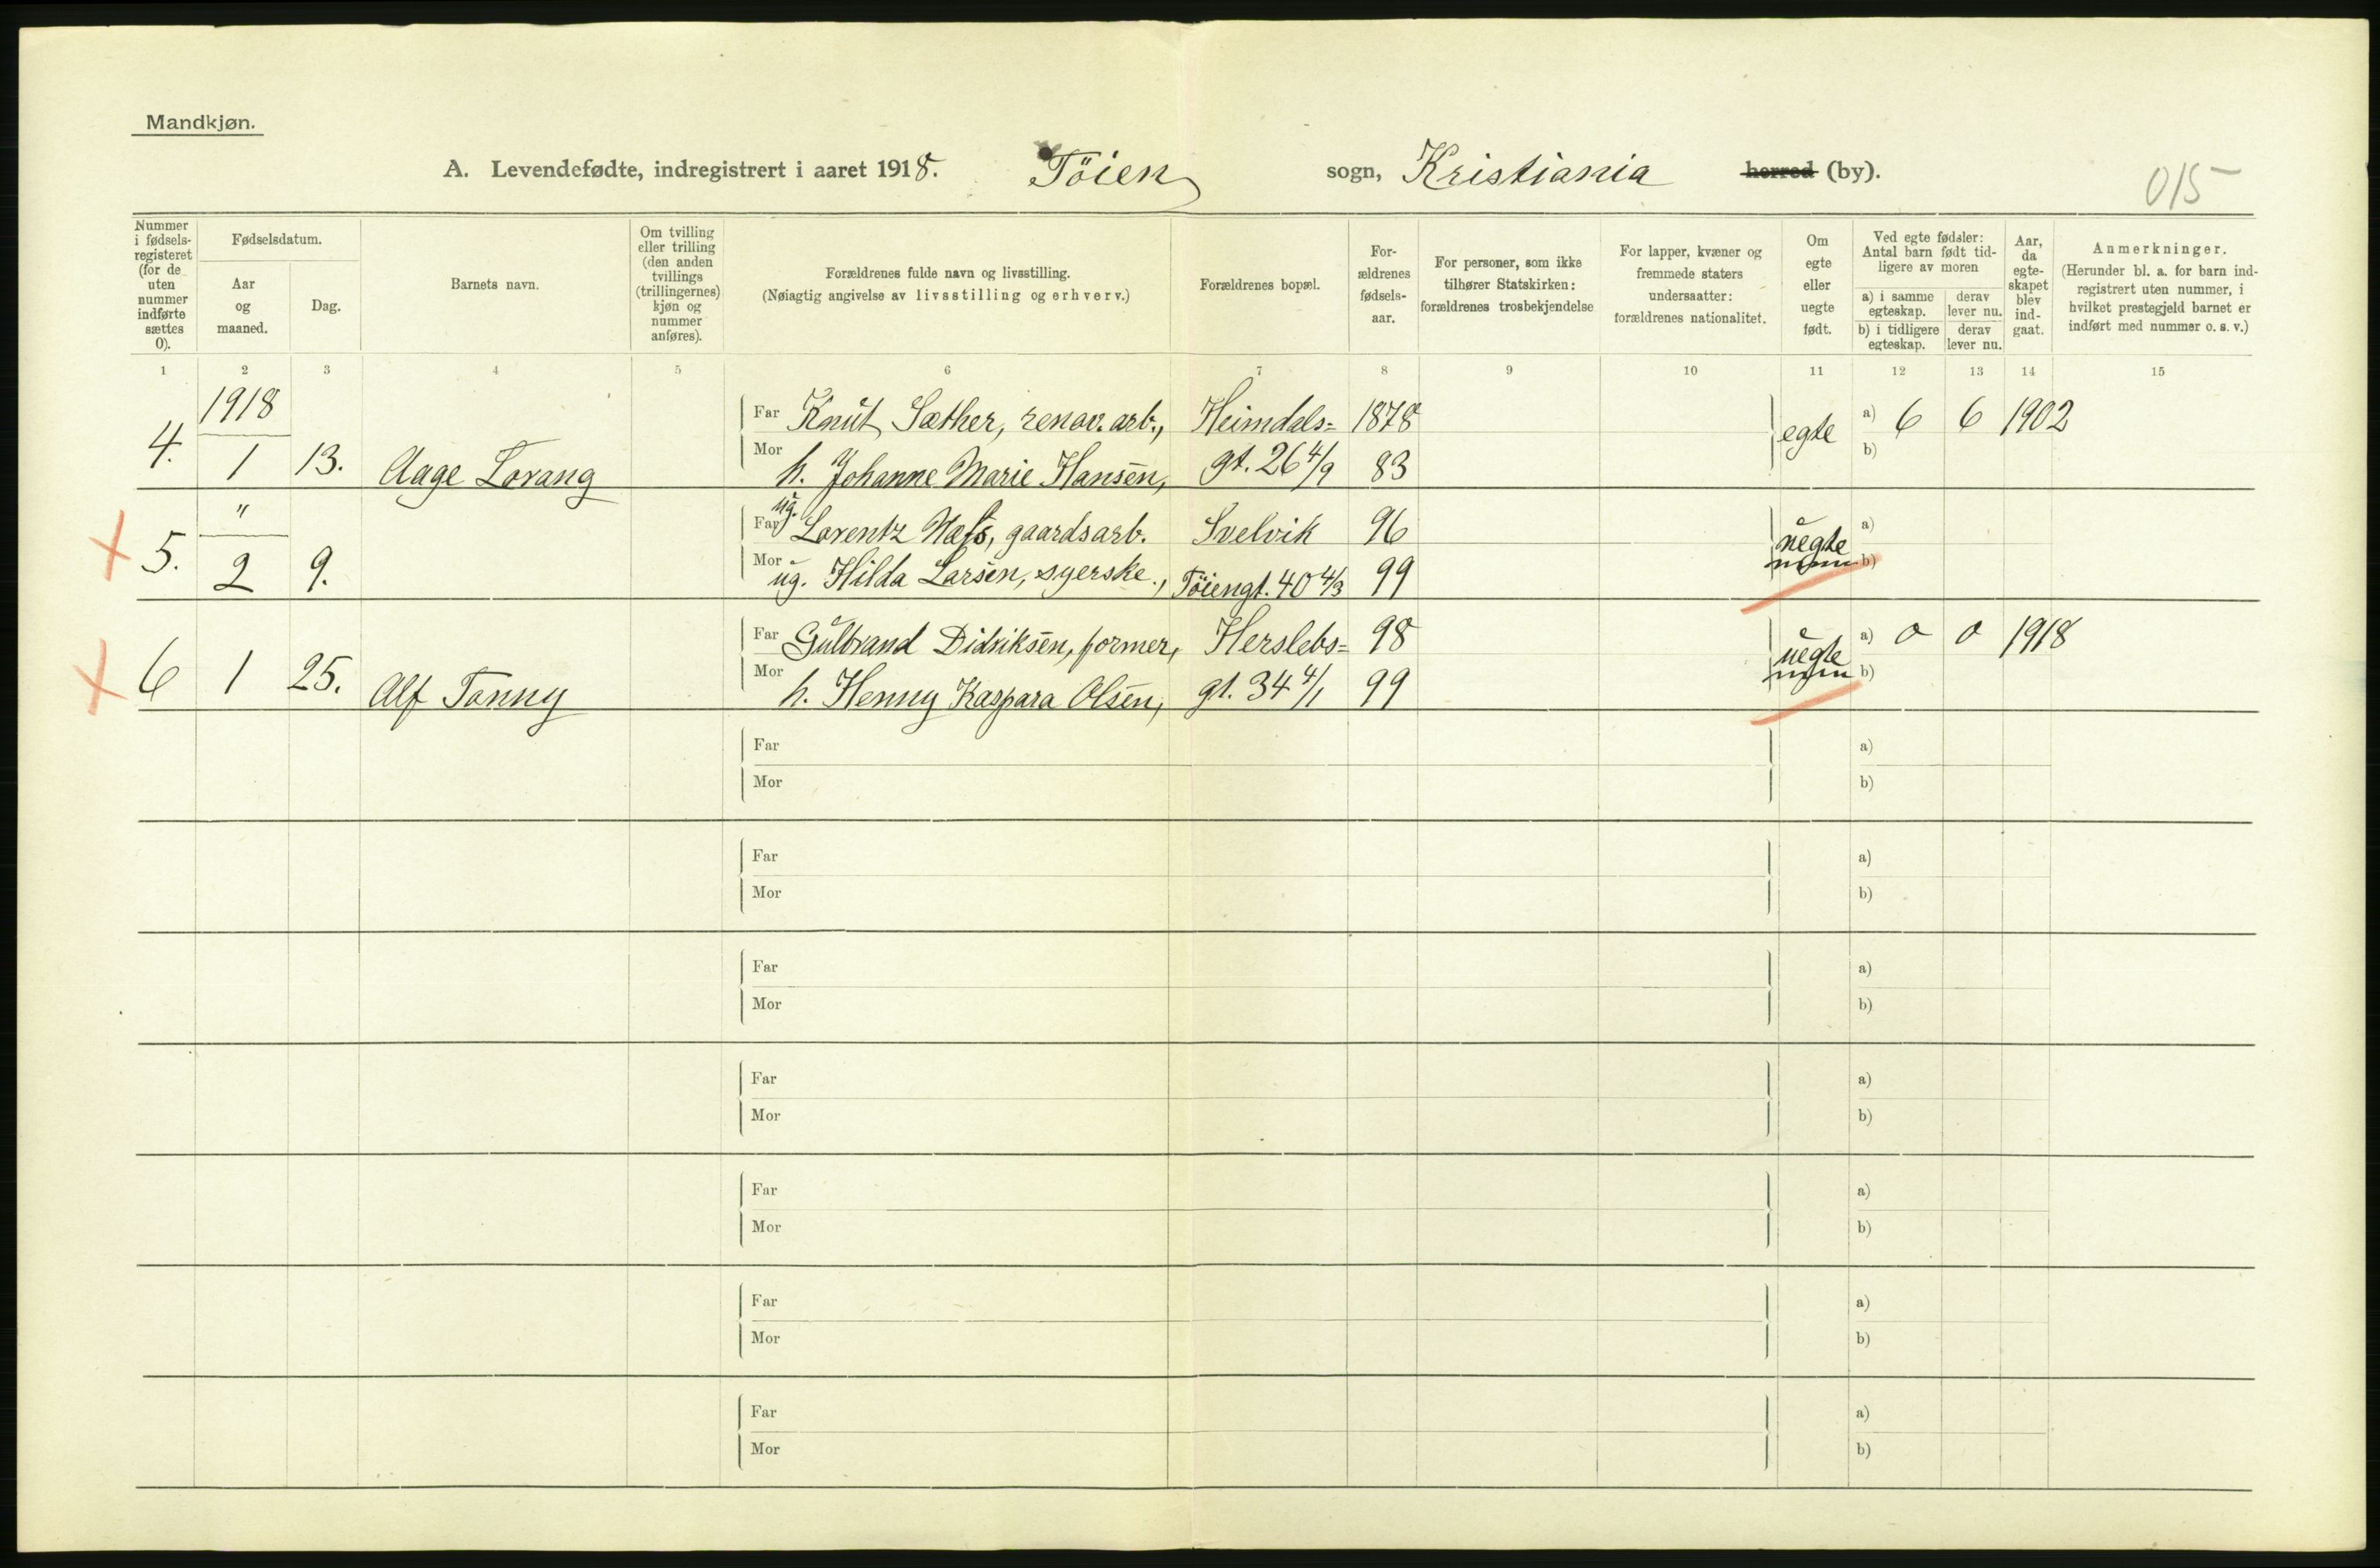 Mandkjøn.
A. Levendefødte, indregistrert i aaret 1918. Töien sogn, Kristiania herred (by).
015
Nummer i fødselsregisteret (for de uten nummer indførte sættes 0).
Fødselsdatum.
Aar og maaned.
Dag.
Barnets navn.
Om tvilling eller trilling (den anden tvillings (trillingernes) kjøn og nummer anføres).
Forældrenes fulde navn og livsstilling.
(Nøiagtig angivelse av livsstilling og erhverv.)
Forældrenes bopæl.
Forældrenes fødselsaar.
For personer, som ikke tilhører Statskirken: forældrenes trosbekjendelse
For lapper, kvæner og fremmede staters undersaatter: forældrenes nationalitet.
Om egte eller uegte født.
Ved egte fødsler: Antal barn født tidligere av moren
a) i samme egteskap.
derav lever nu.
b) i tidligere egteskap.
derav lever nu.
Aar, da egteskapet blev indgaat.
Anmerkninger.
(Herunder bl. a. for barn indregistrert uten nummer, i hvilket prestegjeld barnet er indført med nummer o. s. v.)
1 2 3 4 5 6 7 8 9 10 11 12 13 14 15
1918
Far Knut Sæther, renov. arb., Heimdals= 1878 egte a) 6 6 1902
4. 1 13. Aage Lorang Mor h. Johanne Marie Hansen, gt. 26 4/9 83 b)
" Far ug. Lorentz Næss, gaardsarb. Svelvik 96 uegte a)
5. 2 9. Mor ug. Hilda Larsen, syerske., Töiengt. 40 4/3 99 b)
Far Gulbrand Didriksen, former, Herslebs= 98 uegte a) 0 0 1918
6 1 25. Alf Tonny Mor h. Henny Kaspara Olsen, gt. 34 4/1 99 b)
Far a)
Mor b)
Far a)
Mor b)
Far a)
Mor b)
Far a)
Mor b)
Far a)
Mor b)
Far a)
Mor b)
Far a)
Mor b)